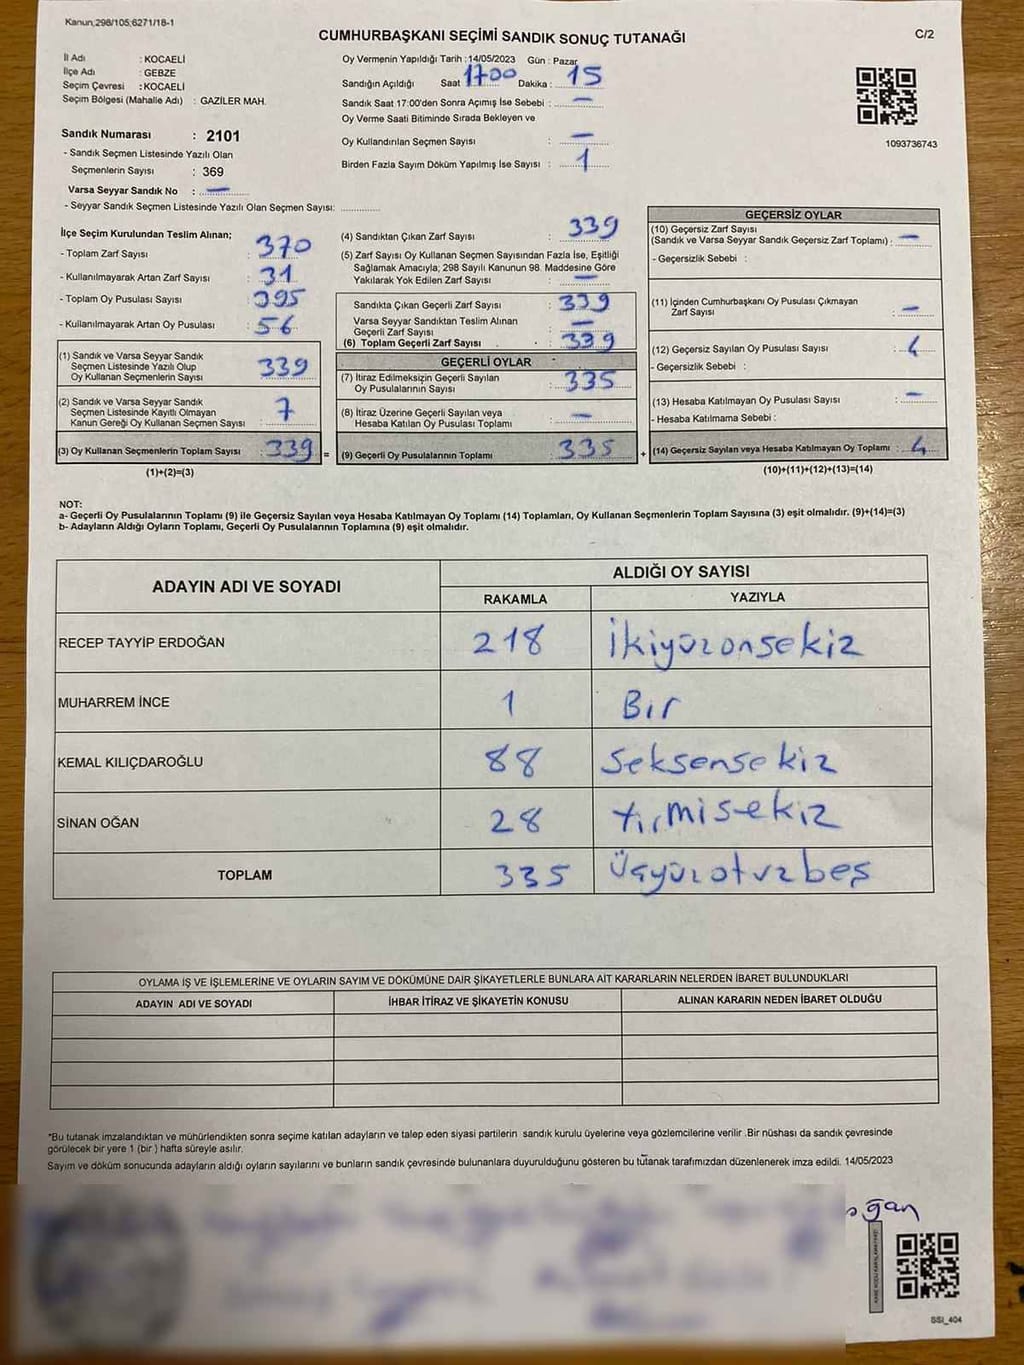 Kanun,298/105;6271/18-1
CUMHURBAŞKANI SEÇİMİ SANDIK SONUÇ TUTANAĞI
C/2
İl Adı : KOCAELİ
İlçe Adı : GEBZE
Seçim Çevresi : KOCAELİ
Seçim Bölgesi (Mahalle Adı) : GAZİLER MAH.
Sandık Numarası : 2101
- Sandık Seçmen Listesinde Yazılı Olan
Seçmenlerin Sayısı : 369
Varsa Seyyar Sandık No : —
- Seyyar Sandık Seçmen Listesinde Yazılı Olan Seçmen Sayısı: ............
Oy Vermenin Yapıldığı Tarih :14/05/2023 Gün : Pazar
Sandığın Açıldığı Saat 1700 Dakika : 15
Sandık Saat 17:00'den Sonra Açımış İse Sebebi : —
Oy Verme Saati Bitiminde Sırada Bekleyen ve
Oy Kullandırılan Seçmen Sayısı : —
Birden Fazla Sayım Döküm Yapılmış İse Sayısı : 1
1093736743
İlçe Seçim Kurulundan Teslim Alınan;
- Toplam Zarf Sayısı : 370
- Kullanılmayarak Artan Zarf Sayısı : 31
- Toplam Oy Pusulası Sayısı : 395
- Kullanılmayarak Artan Oy Pusulası : 56
(1) Sandık ve Varsa Seyyar Sandık
Seçmen Listesinde Yazılı Olup
Oy Kullanan Seçmenlerin Sayısı : 339
(2) Sandık ve Varsa Seyyar Sandık
Seçmen Listesinde Kayıtlı Olmayan
Kanun Gereği Oy Kullanan Seçmen Sayısı : 7
(3) Oy Kullanan Seçmenlerin Toplam Sayısı : 339 =
(1)+(2)=(3)
(4) Sandıktan Çıkan Zarf Sayısı : 339
(5) Zarf Sayısı Oy Kullanan Seçmen Sayısından Fazla İse, Eşitliği
Sağlamak Amacıyla; 298 Sayılı Kanunun 98. Maddesine Göre
Yakılarak Yok Edilen Zarf Sayısı : —
Sandıkta Çıkan Geçerli Zarf Sayısı : 339
Varsa Seyyar Sandıktan Teslim Alınan
Geçerli Zarf Sayısı : —
(6) Toplam Geçerli Zarf Sayısı : 339
GEÇERLİ OYLAR
(7) İtiraz Edilmeksizin Geçerli Sayılan
Oy Pusulalarının Sayısı : 335
(8) İtiraz Üzerine Geçerli Sayılan veya
Hesaba Katılan Oy Pusulası Toplamı : —
(9) Geçerli Oy Pusulalarının Toplamı : 335 +
GEÇERSİZ OYLAR
(10) Geçersiz Zarf Sayısı
(Sandık ve Varsa Seyyar Sandık Geçersiz Zarf Toplamı) : —
- Geçersizlik Sebebi :
(11) İçinden Cumhurbaşkanı Oy Pusulası Çıkmayan
Zarf Sayısı : —
(12) Geçersiz Sayılan Oy Pusulası Sayısı : 4
- Geçersizlik Sebebi :
(13) Hesaba Katılmayan Oy Pusulası Sayısı : —
- Hesaba Katılmama Sebebi :
(14) Geçersiz Sayılan veya Hesaba Katılmayan Oy Toplamı : 4
(10)+(11)+(12)+(13)=(14)
NOT:
a- Geçerli Oy Pusulalarının Toplamı (9) ile Geçersiz Sayılan veya Hesaba Katılmayan Oy Toplamı (14) Toplamları, Oy Kullanan Seçmenlerin Toplam Sayısına (3) eşit olmalıdır. (9)+(14)=(3)
b- Adayların Aldığı Oyların Toplamı, Geçerli Oy Pusulalarının Toplamına (9) eşit olmalıdır.
ADAYIN ADI VE SOYADI ALDIĞI OY SAYISI
RAKAMLA YAZIYLA
RECEP TAYYİP ERDOĞAN 218 İkiyüzonsekiz
MUHARREM İNCE 1 Bir
KEMAL KILIÇDAROĞLU 88 Seksensekiz
SİNAN OĞAN 28 Yirmisekiz
TOPLAM 335 Üçyüzotuzbeş
OYLAMA İŞ VE İŞLEMLERİNE VE OYLARIN SAYIM VE DÖKÜMÜNE DAİR ŞİKAYETLERLE BUNLARA AİT KARARLARIN NELERDEN İBARET BULUNDUKLARI
ADAYIN ADI VE SOYADI İHBAR İTİRAZ VE ŞİKAYETİN KONUSU ALINAN KARARIN NEDEN İBARET OLDUĞU
*Bu tutanak imzalandıktan ve mühürlendikten sonra seçime katılan adayların ve talep eden siyasi partilerin sandık kurulu üyelerine veya gözlemcilerine verilir .Bir nüshası da sandık çevresinde
görülecek bir yere 1 (bir ) hafta süreyle asılır.
Sayım ve döküm sonucunda adayların aldığı oyların sayılarını ve bunların sandık çevresinde bulunanlara duyurulduğunu gösteren bu tutanak tarafımızdan düzenlenerek imza edildi. 14/05/2023
ğan
SSI_404